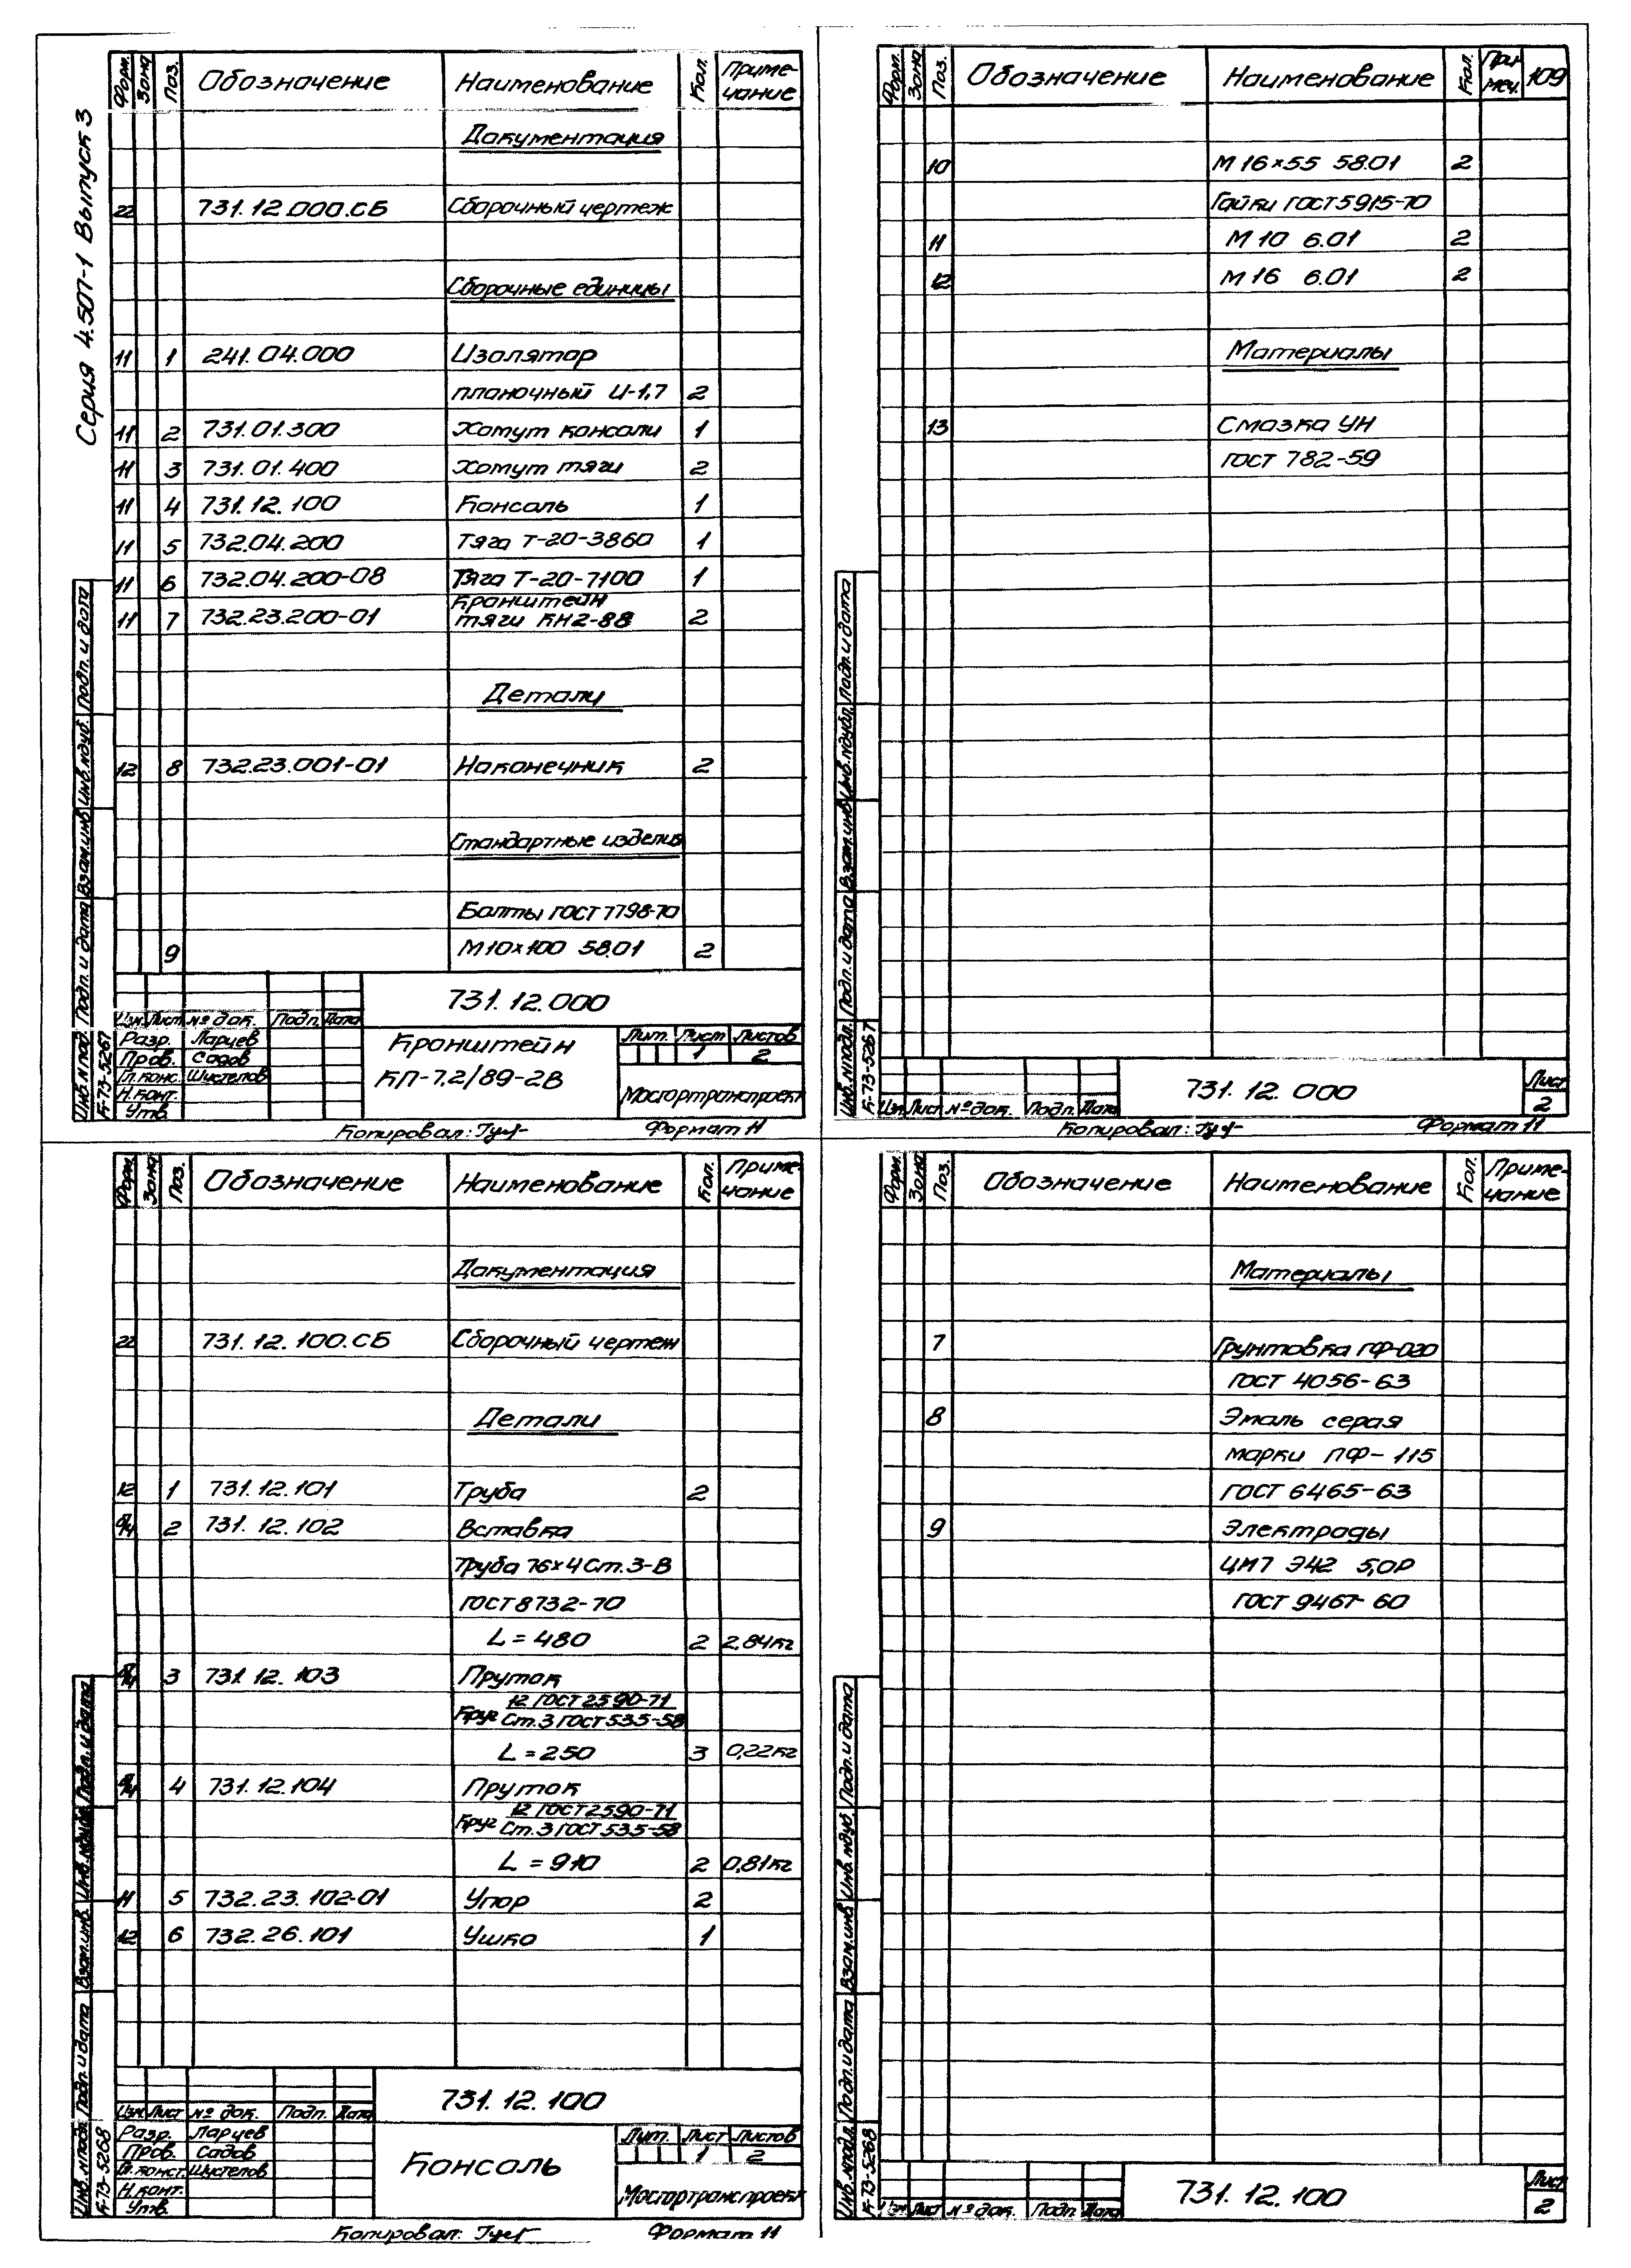 Серия 4.507-1 Выпуск 3
Форм. Зона Поз. Обозначение Наименование Кол. Приме-
чание
Документация
22 731.12.000.СБ Сборочный чертеж
Сборочные единицы
11 1 241.04.000 Изолятор
планочный И-1,7 2
11 2 731.01.300 Хомут консоли 1
11 3 731.01.400 Хомут тяги 2
11 4 731.12.100 Консоль 1
11 5 732.04.200 Тяга Т-20-3860 1
11 6 732.04.200-08 Тяга Т-20-7100 1
Кронштейн
11 7 732.23.200-01 тяги КН2-88 2
Детали
12 8 732.23.001-01 Наконечник 2
Стандартные изделия
Болты ГОСТ 7798-70
9 М10×100 58.01 2
731.12.000
Изм. Лист № док. Подп. Дата
Разр. Ларцев
Пров. Садов
Гл. конс. Шустелов
Н. конт.
Утв.
Кронштейн
КП-7.2/89-2В
Лит. Лист Листов
1 2
Мосгортранспроект
Инв. № подл. Подп. и дата Взам. инв. Инв. № дуб. Подп. и дата
К-73-5267
Копировал:
Формат 11
Форм. Зона Поз. Обозначение Наименование Кол. При
меч. 109
10 М 16×55 58.01 2
Гайки ГОСТ 5915-70
11 М 10 6.01 2
12 М 16 6.01 2
Материалы
13 Смазка УН
ГОСТ 782-59
Инв. № подл. Подп. и дата Взам. инв. Инв. № дубл. Подп. и дата
К-73-5267
Изм. Лист № док. Подп. Дата
731.12.000
Лист
2
Копировал:
Формат 11
Форм. Зона Поз. Обозначение Наименование Кол. Приме-
чание
Документация
22 731.12.100.СБ Сборочный чертеж
Детали
12 1 731.12.101 Труба 2
б/ч 2 731.12.102 Вставка
Труба 76×4 Ст.3-В
ГОСТ 8732-70
L = 480 2 2,84кг
б/ч 3 731.12.103 Пруток
Круг 12 ГОСТ 2590-71
Ст.3 ГОСТ 535-58
L = 250 3 0,22кг
б/ч 4 731.12.104 Пруток
Круг 12 ГОСТ 2590-71
Ст.3 ГОСТ 535-58
L = 910 2 0,81кг
11 5 732.23.102-01 Упор 2
12 6 732.26.101 Ушко 1
731.12.100
Изм. Лист № док. Подп. Дата
Разр. Ларцев
Пров. Садов
Гл. конст. Шустелов
Н. конт.
Утв.
Консоль
Лит. Лист Листов
1 2
Мосгортранспроект
Инв. № подл. Подп. и дата Взам. инв. Инв. № дуб. Подп. и дата
К-73-5268
Копировал:
Формат 11
Форм. Зона Поз. Обозначение Наименование Кол. Приме-
чание
Материалы
7 Грунтовка ГФ-020
ГОСТ 4056-63
8 Эмаль серая
марки ПФ-115
ГОСТ 6465-63
9 Электроды
ЦМ7 Э42 5,0Р
ГОСТ 9467-60
Инв. № подл. Подп. и дата Взам. инв. Инв. № дуб. Подп. и дата
К-73-5268
Изм. Лист № док. Подп. Дата
731.12.100
Лист
2